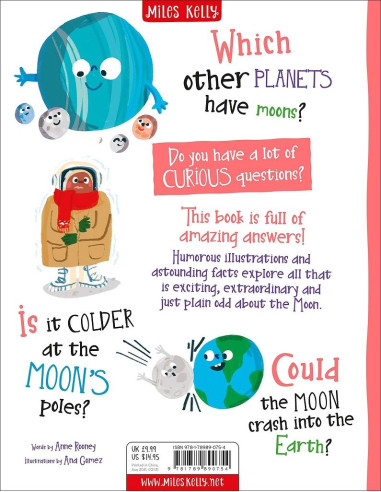 Miles Kelly
Which
other PLANETS
have moons?
Do you have a lot of
CURIOUS questions?
This book is full of
amazing answers!
Humorous illustrations and
astounding facts explore all that
is exciting, extraordinary and
just plain odd about the Moon.
Is it COLDER
at the
MOON'S
poles?
Could
the MOON
crash into the
Earth?
Words by Anne Rooney
Illustrations by Ana Gomez
UK £9.99
US $14.95
ISBN 978-1-78989-075-4
9 781789 890754
www.mileskelly.net